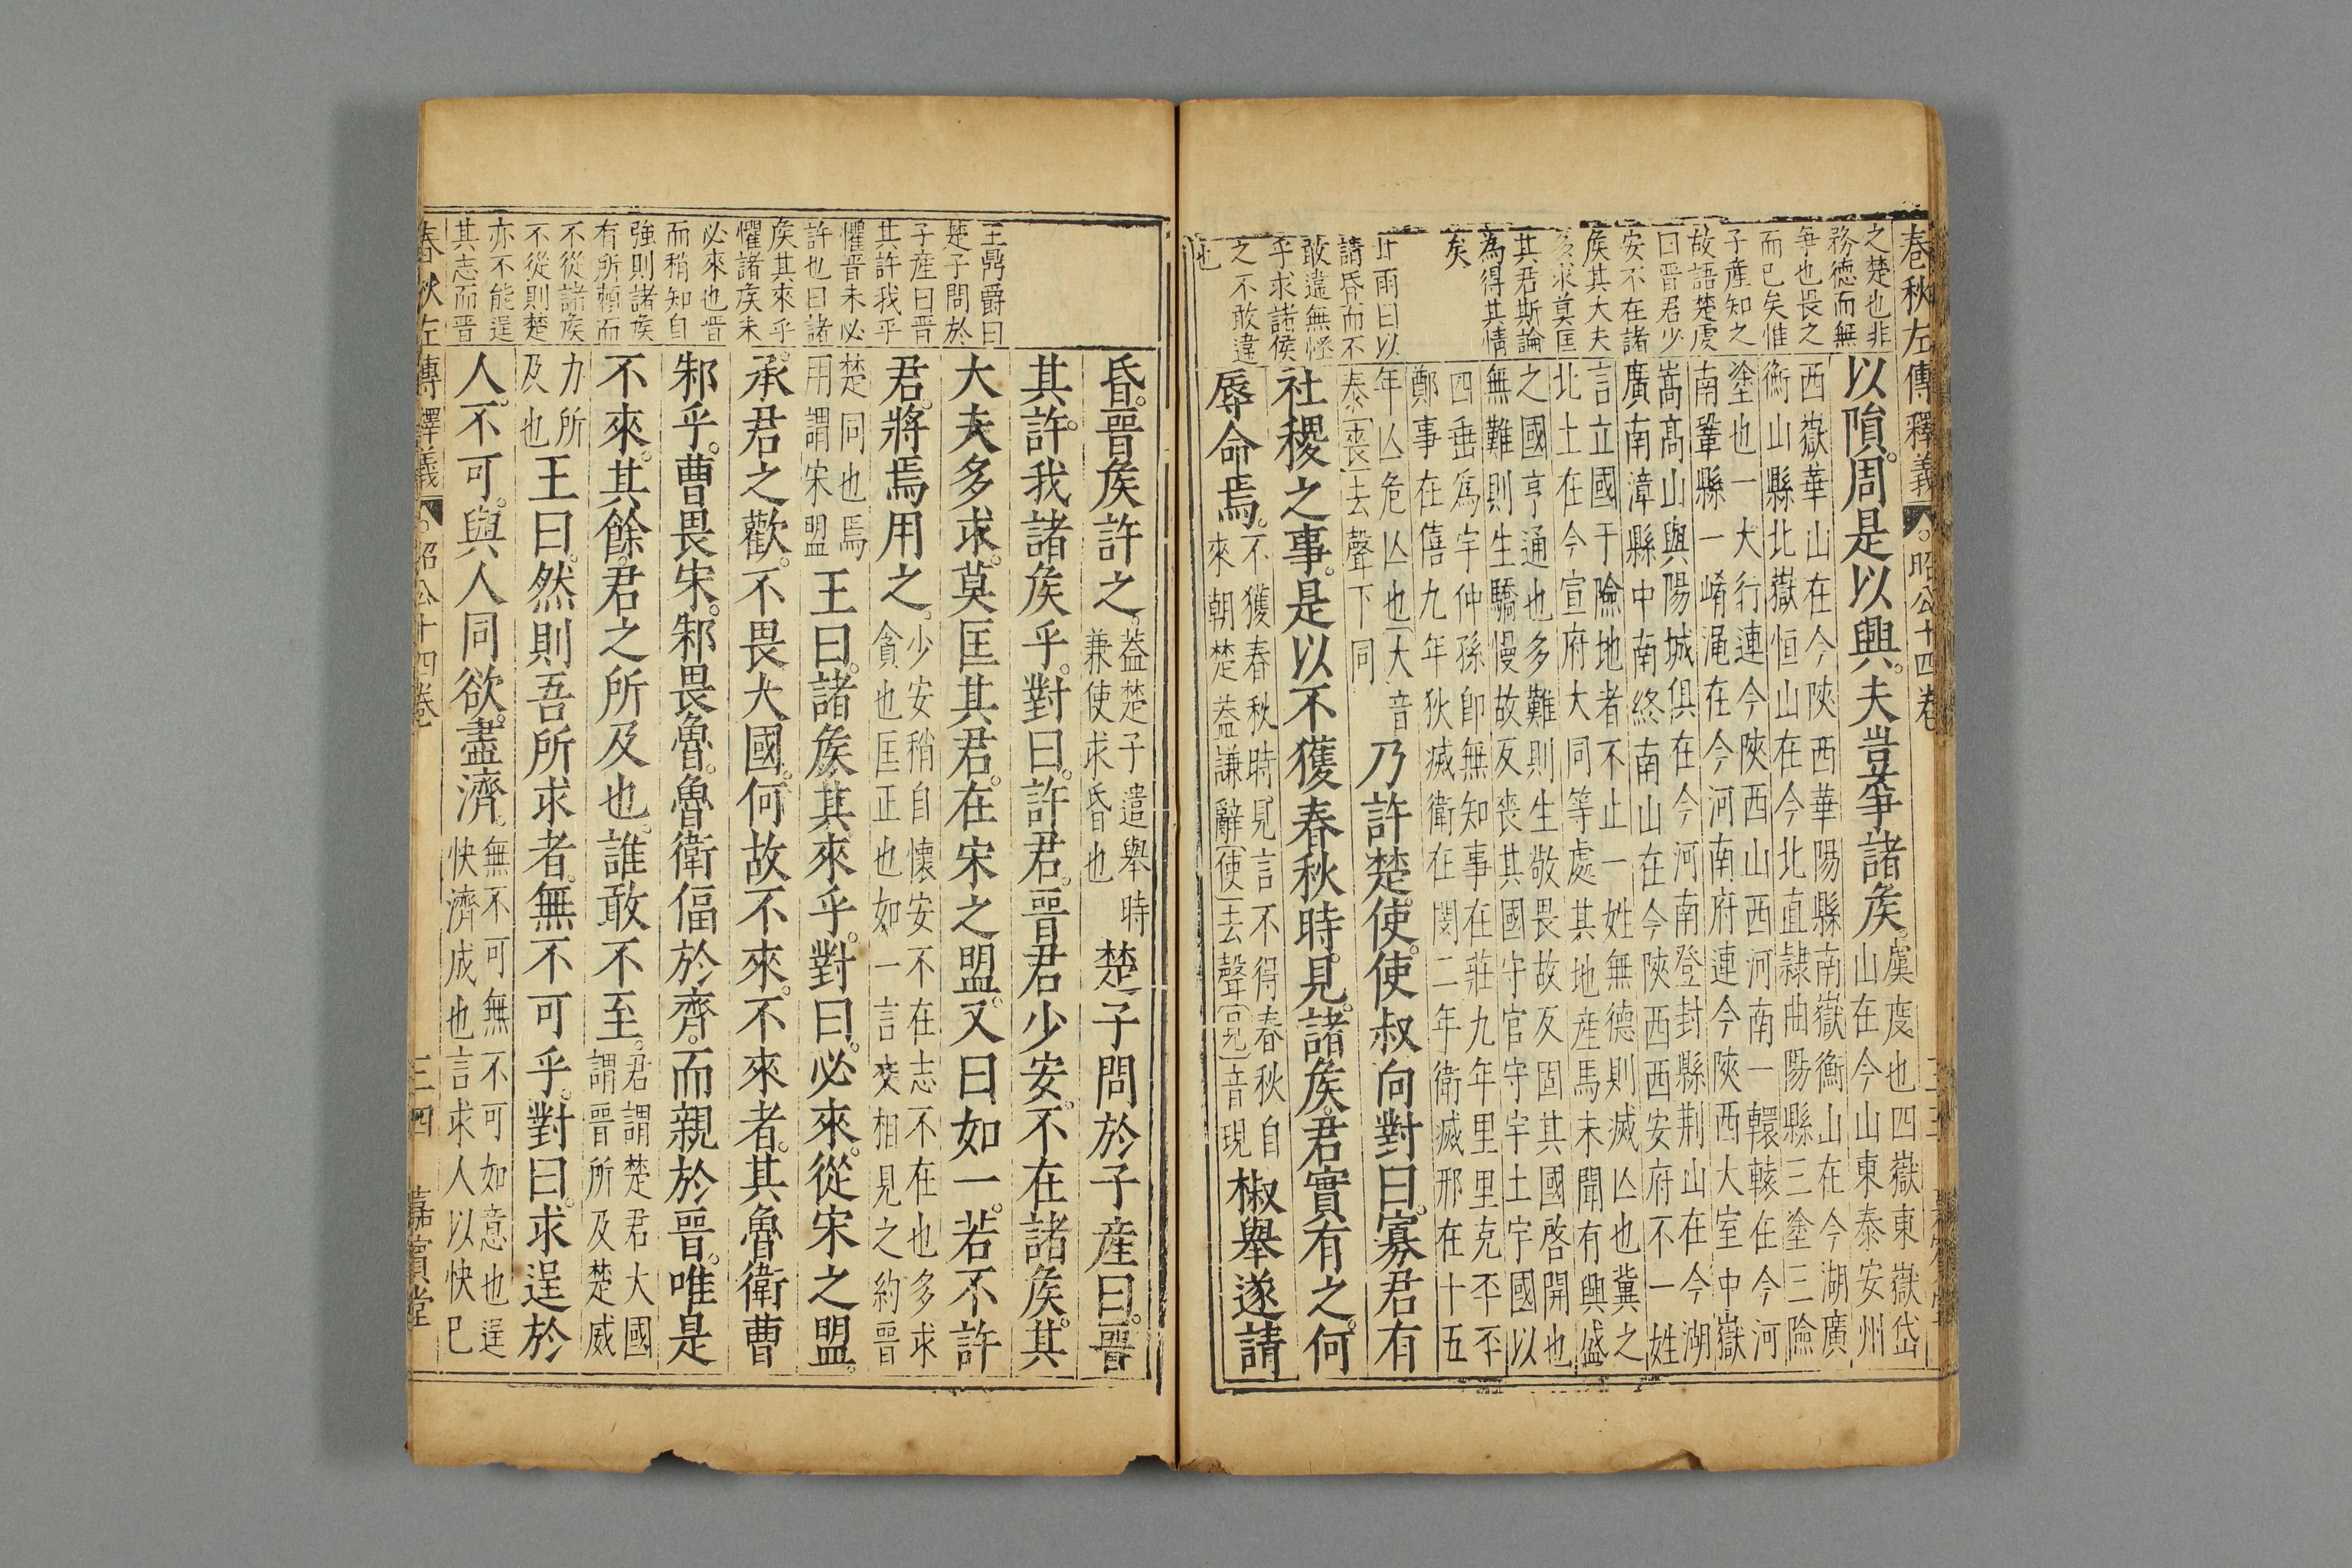 春秋左傳釋義 昭公十四卷
之楚也非
務德而無
爭也畏之
而已矣惟
子產知之
故語楚虔
曰晉君少
安不在諸
矦其大夫
多求莫匡
其君斯論
為得其情
矣
止雨曰以
請昏而不
敢違無怪
乎求諸侯
之不敢違
也
以隕。周是以興。夫豈爭諸矦。虞度也四嶽東嶽岱
山在今山東泰安州
西嶽華山在今陝西華陽縣南嶽衡山在今湖廣
衡山縣北嶽恒山在今北直隷曲陽縣三塗三險
塗也一大行連今陝西山西河南一轘轅在今河
南鞏縣一崤澠在今河南府連今陝西大室中嶽
嵩髙山與陽城俱在今河南登封縣荆山在今湖
廣南漳縣中南終南山在今陝西西安府不一姓
言立國于險地者不止一姓無德則滅亾也冀之
北土在今宣府大同等處其地產馬未聞有興盛
之國亨通也多難則生敬畏故反固其國啓開也
無難則生驕慢故反喪其國守官守宇土宇國以
四垂爲宇仲孫卽無知事在莊九年里里克丕丕
鄭事在僖九年狄滅衛在閔二年衛滅邢在十五
年亾危亾也大音
泰喪去聲下同
乃許楚使。使叔向對曰。寡君有
社稷之事。是以不獲春秋時。見。諸矦。君實有之。何
辱命焉。不獲春秋時見言不得春秋自
來朝楚葢謙辭使去聲見音現
椒舉遂請
王鼎爵曰
楚子問於
子產曰晉
其許我乎
懼晉未必
許也曰諸
矦其來乎
懼諸矦未
必來也晉
而稍知自
強則諸矦
有所賴而
不從諸矦
不從則楚
亦不能逞
其志而晉
昏。晉矦許之。葢楚子遣舉時
兼使求昏也
楚子問於子產曰。晉
其許。我諸矦乎。對曰。許君。晉君少安。不在諸矦。其
大夫多求。莫匡其君。在宋之盟。又曰如一。若不許
君。將焉用之。少安稍自懷安不在志不在也多求
貪也匡正也如一言交相見之約晉
楚同也焉
用謂宋盟
王曰。諸矦其來乎。對曰。必來。從宋之盟。
承君之歡。不畏大國。何故不來。不來者。其魯衛曹
邾乎。曹畏宋。邾畏魯。魯衛偪於齊。而親於晉。唯是
不來。其餘君之所及也。誰敢不至。君謂楚君大國
謂晉所及楚威
力所
及也
王曰。然則吾所求者。無不可乎。對曰。求逞於
人。不可。與人同欲。盡濟。無不可無不可如意也逞
快濟成也言求人以快已
春秋左傳釋義 昭公十四卷 三四 嘉賓堂